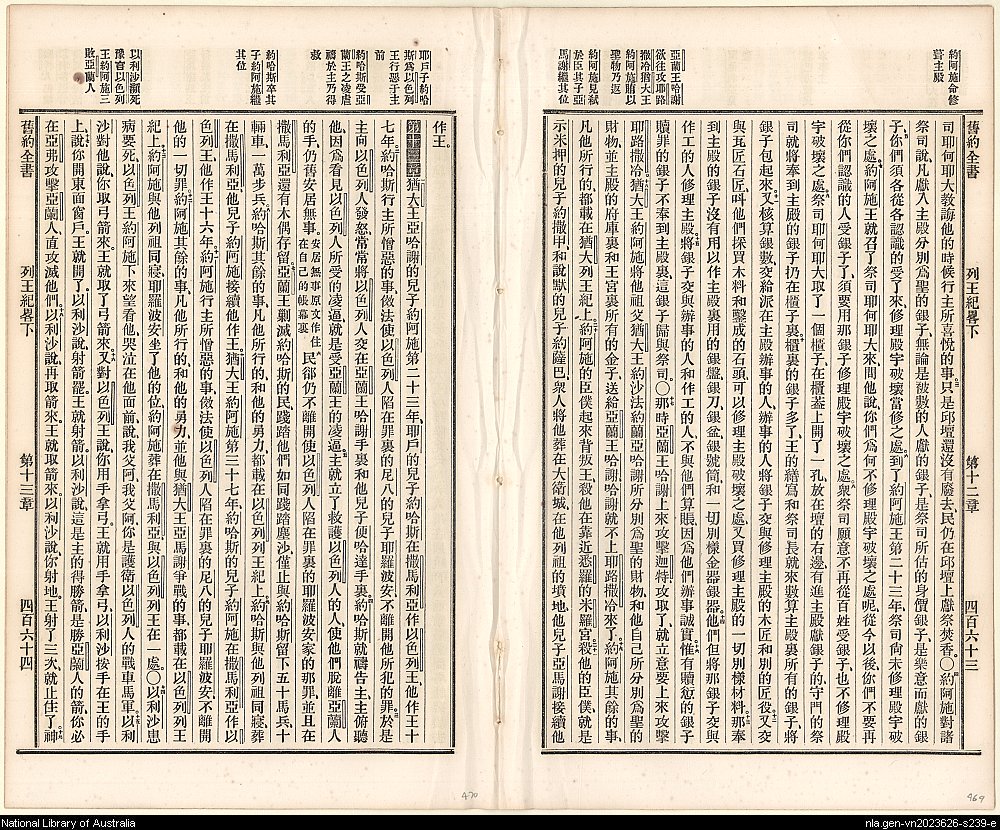 約阿施命修
葺主殿
亞蘭王哈謝
欲往攻耶路
撒冷猶大王
約阿施賄以
聖物乃返
約阿施見弒
於臣其子亞
馬謝繼其位
舊約全書 列王紀畧下 第十二章 四百六十三
司耶何耶大教誨他的時候行主所喜悅的事、只是邱壇還沒有廢去、民仍在邱壇上獻祭焚香。〇約阿施對諸
祭司說、凡獻入主殿分別爲聖的銀子、無論是被數的人獻的銀子、是祭司所估的身價銀子、是樂意而獻的銀
子、你們須各從各認識的受了來、修理殿宇破壞當修之處。到了約阿施王第二十三年、祭司尙未修理殿宇破
壞之處。約阿施王就召了祭司耶何耶大來、問他說、你們爲何不修理殿宇破壞之處呢、從今以後、你們不要再
從你們認識的人受銀子了、須要用那銀子修理殿宇破壞之處。衆祭司願意不再從百姓受銀子、也不修理殿
宇破壞之處。祭司耶何耶大取了一個櫃子、在櫃蓋上開了一孔、放在壇的右邊、有進主殿獻銀子的、守門的祭
司就將奉到主殿的銀子扔在櫃子裏。櫃裏的銀子多了、王的繕寫和祭司長就來數算主殿裏所有的銀子、將
銀子包起來。又核算銀數交給派在主殿辦事的人、辦事的人將銀子交與修理主殿的木匠和別的匠役、又交
與瓦匠石匠、叫他們採買木料和鑿成的石頭、可以修理主殿破壞之處、又買修理主殿的一切別樣材料。那奉
到主殿的銀子、沒有用以作主殿裏用的銀盤銀刀、銀盆、銀號筒、和一切別樣金器銀器。他們但將那銀子交與
作工的人修理主殿。將銀子交與辦事的人和作工的人、不與他們算賬、因爲他們辦事誠實。惟有贖愆的銀子
贖罪的銀子、不奉到主殿裏、這銀子歸與祭司。〇那時亞蘭王哈謝上來攻擊迦特、攻取了、就立意要上來攻擊
耶路撒冷。猶大王約阿施將他祖父猶大王約沙法約蘭亞哈謝所分別爲聖的財物、和他自己所分別爲聖的
財物、並主殿的府庫裏和王宮裏所有的金子、送給亞蘭王哈謝、哈謝就不上耶路撒冷來了。約阿施其餘的事、
凡他所行的、都載在猶大列王紀上。約阿施的臣僕起來背叛王、殺他在靠近悉羅的米羅宮。殺他的臣僕、就是
示米押的兒子約撒甲、和說默的兒子約薩巴、衆人將他葬在大衛城、在他列祖的墳地、他兒子亞馬謝接續他
作王。
耶戶子約哈
斯爲以色列
王行惡于主
前
約哈斯受亞
蘭王之凌虐
禱於主乃得
救
約哈斯卒其
子約阿施繼
其位
以利沙瀕死
豫言以色列
王約阿施三
敗亞蘭人
第十三章猶大王亞哈謝的兒子約阿施第二十三年、耶戶的兒子約哈斯在撒馬利亞作以色列王、他作王十
七年。約哈斯行主所憎惡的事、做法使以色列人陷在罪裏的尼八的兒子耶羅波安、不離開他所犯的罪。於是
主向以色列人發怒、常常將以色列人交在亞蘭王哈謝手裏和他兒子便哈達手裏。約哈斯就禱吿主、主俯聽
他、因爲看見以色列人所受的凌逼、就是受亞蘭王的凌逼。主就立了救護以色列人的人、使他們脫離亞蘭人
的手、仍舊安居無事。安居無事原文作住在自己的帳幕裏民卻仍不離開使以色列人陷在罪裏的耶羅波安家的那罪、並且在
撒馬利亞還有木偶存留。亞蘭王剿滅約哈斯的民踐踏他們如同踐踏塵沙、僅止與約哈斯留下五十馬兵、十
輛車、一萬步兵。約哈斯其餘的事、凡他所行的和他的勇力、都載在以色列列王紀上。約哈斯與他列祖同寢、葬
在撒馬利亞、他兒子約阿施接續他作王。猶大王約阿施第三十七年、約哈斯的兒子約阿施在撒馬利亞作以
色列王、他作王十六年。約阿施行主所憎惡的事、做法使以色列人陷在罪裏的尼八的兒子耶羅波安、不離開
他的一切罪。約阿施其餘的事、凡他所行的、和他的勇力、並他與猶大王亞馬謝爭戰的事、都載在以色列列王
紀上。約阿施與他列祖同寢、耶羅波安坐了他的位、約阿施葬在撒馬利亞、與以色列列王在一處。〇以利沙患
病要死、以色列王約阿施下來望看他、哭泣在他面前、說、我父阿、我父阿、你是護衛以色列人的戰車馬軍。以利
沙對他說、你取弓箭來、王就取了弓箭來。又對以色列王說、你用手拿弓、王就用手拿弓、以利沙按手在王的手
上、說、你開東面窗戶、王就開了、以利沙說、射箭罷、王就射箭、以利沙說、這是主的得勝箭、是勝亞蘭人的箭、你必
在亞弗攻擊亞蘭人、直攻滅他們。以利沙說、再取箭來、王就取箭來、以利沙說、你射地、王射了三次、就止住了。神
舊約全書 列王紀畧下 第十三章 四百六十四
470
469
National Library of Australia
nla.gen-vn2023626-s239-e